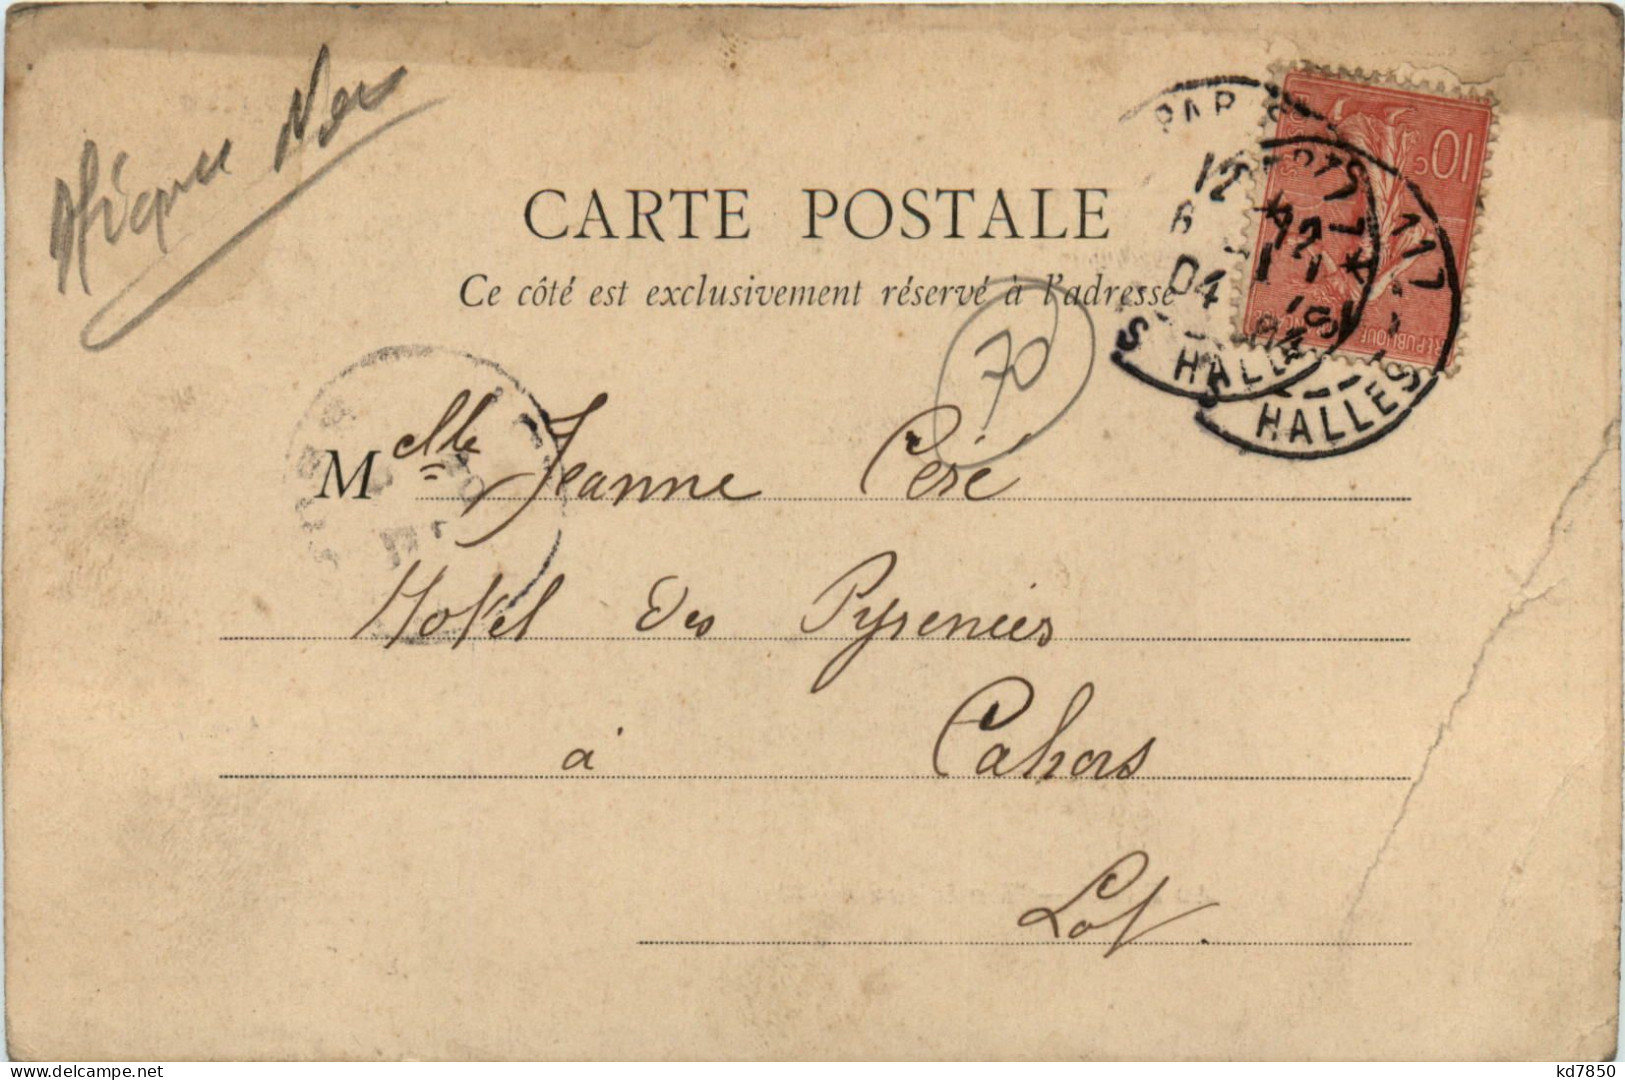 Afrique Noire
CARTE POSTALE
Ce côté est exclusivement réservé à l'adresse
70
10c
RÉPUBLIQUE FRANÇAISE
POSTES
PARIS
117
12
04
HALLES
HALLES
Melle Jeanne Céré
Hotel des Pyrenées
à Cahors
Lot.
kd7850